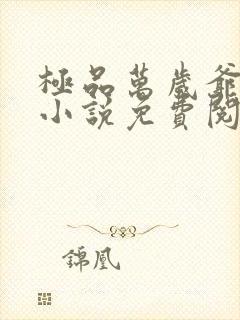 極品萬歲爺
小說免費閱
錦凰